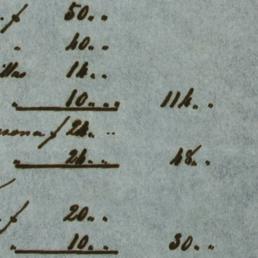 f 50 „
„ 40 „
illas 14 „
„ 10 „ 114 „
sona f 24 „
„ 24 „ 48 „
f 20 „
„ 10 „ 30 „